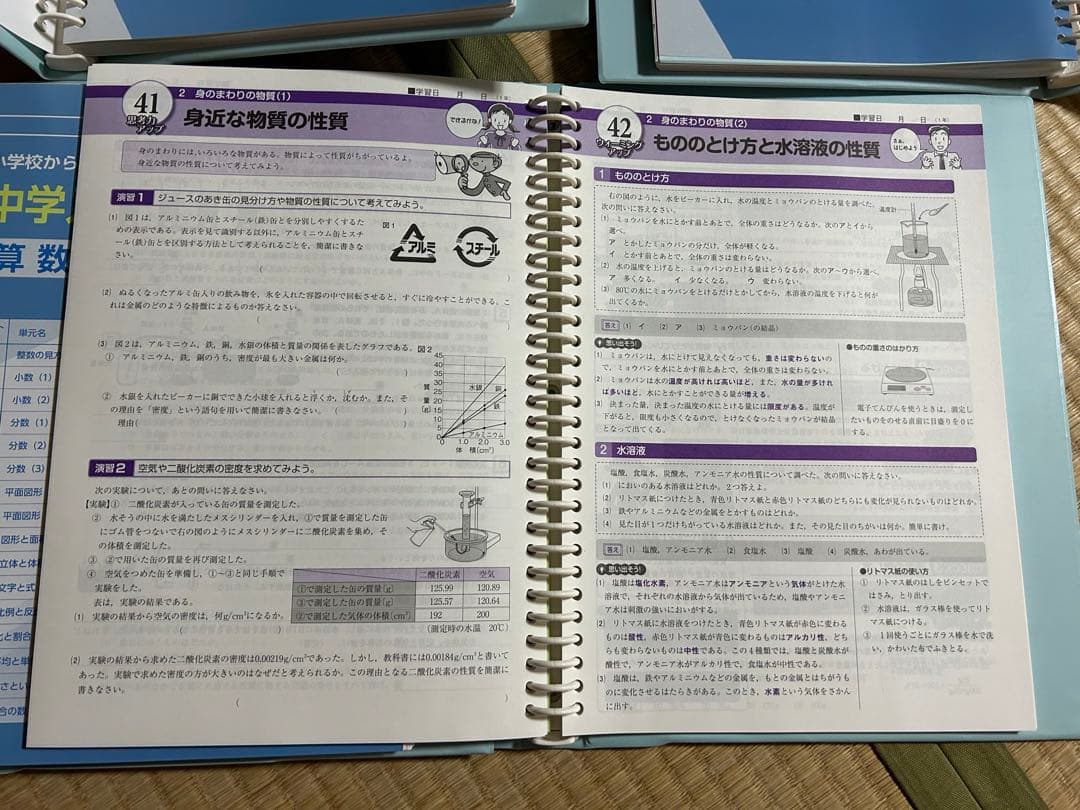 小学校から
中学
算数
単元名
整数の見方
小数（1）
小数（2）
分数（1）
分数（2）
分数（3）
平面図形
平面図形
図形と面
立体と体
文字と式
比例と反
と割合
平均と単
合の数
41
思考力
アップ
2 身のまわりの物質(1)
■学習日 月 日 (1年)
身近な物質の性質
できるかな！
身のまわりには，いろいろな物質がある。物質によって性質がちがっているよ。
身近な物質の性質について考えてみよう。
演習1 ジュースのあき缶の見分け方や物質の性質について考えてみよう。
(1) 図1は，アルミニウム缶とスチール(鉄)缶とを分別しやすくするた
めの表示である。表示を見て識別する以外に，アルミニウム缶とスチ
ール(鉄)缶とを区別する方法として考えられることを，簡潔に書きな
さい。
図1
アルミ
スチール
(2) ぬるくなったアルミ缶入りの飲み物を，氷を入れた容器の中で回転させると，すぐに冷やすことができる。こ
れは金属のどのような特徴によるものか答えなさい。
(3) 図2は，アルミニウム，鉄，銅，水銀の体積と質量の関係を表したグラフである。
① アルミニウム，鉄，銅のうち，密度が最も大きい金属は何か。
② 水銀を入れたビーカーに銅でできた小球を入れると浮くか，沈むか。また，そ
の理由を「密度」という語句を用いて簡潔に書きなさい。
理由(
図2
45
40
35
30
25
20
15
10
5
0
質量(g)
水銀
銅
鉄
アルミニウム
1.0 2.0 3.0
体積(cm³)
演習2 空気や二酸化炭素の密度を求めてみよう。
次の実験について，あとの問いに答えなさい。
【実験】① 二酸化炭素が入っている缶の質量を測定した。
② 水そうの中に水を満たしたメスシリンダーを入れ，①で質量を測定した缶
にゴム管をつないで右の図のようにメスシリンダーに二酸化炭素を集め，そ
の体積を測定した。
③ ②で用いた缶の質量を再び測定した。
④ 空気をつめた缶を準備し，①～③と同じ手順で
実験をした。
表は，実験の結果である。
二酸化炭素 空気
①で測定した缶の質量〔g〕 125.99 120.89
③で測定した缶の質量〔g〕 125.57 120.64
②で測定した気体の体積〔cm³〕 192 200
(測定時の水温 20℃)
(1) 実験の結果から空気の密度は，何g/cm³になるか。
(2) 実験の結果から求めた二酸化炭素の密度は0.00219g/cm³であった。しかし，教科書には0.00184g/cm³と書いて
あった。実験で求めた密度の方が大きいのはなぜだと考えられるか。この理由となる二酸化炭素の性質を簡潔に
書きなさい。
42
ウォーミング
アップ
2 身のまわりの物質(2)
■学習日 月 日 (1年)
もののとけ方と水溶液の性質
さぁ，
はじめよう
1 もののとけ方
右の図のように，水をビーカーに入れ，水の温度とミョウバンのとける量を調べた。
次の問いに答えなさい。
(1) ミョウバンを水にとかす前とあとで，全体の重さはどうなるか。次のアとイから
選べ。
ア とかしたミョウバンの分だけ，全体が軽くなる。
イ とかす前とあとで，全体の重さは変わらない。
(2) 水の温度を上げると，ミョウバンのとける量はどうなるか。次のア～ウから選べ。
ア 多くなる。 イ 少なくなる。 ウ 変わらない。
(3) 80℃の水にミョウバンをとけるだけとかしてから，水溶液の温度を下げると何が
出てくるか。
温度計
答え (1) イ (2) ア (3) ミョウバン(の結晶)
思い出そう！
(1) ミョウバンは，水にとけて見えなくなっても，重さは変わらないの
で，ミョウバンを水にとかす前とあとで，全体の重さは変わらない。
(2) ミョウバンは水の温度が高ければ高いほど，また，水の量が多けれ
ば多いほど，水にとかすことができる量が増える。
(3) 決まった量，決まった温度の水にとける量には限度がある。温度が
下がると，限度も小さくなるので，とけなくなったミョウバンが結晶
となって出てくる。
●ものの重さのはかり方
電子てんびんを使うときは，測定し
たいものをのせる直前に目盛りを0に
する。
2 水溶液
塩酸，食塩水，炭酸水，アンモニア水の性質について調べた。次の問いに答えなさい。
(1) においのある水溶液はどれか。2つ答えよ。
(2) リトマス紙につけたとき，青色リトマス紙と赤色リトマス紙のどちらにも変化が見られないものはどれか。
(3) 鉄やアルミニウムなどの金属をとかすものはどれか。
(4) 見た目が1つだけちがっている水溶液はどれか。また，その見た目のちがいは何か。簡単に書け。
答え (1) 塩酸，アンモニア水 (2) 食塩水 (3) 塩酸 (4) 炭酸水，あわが出ている。
思い出そう！
(1) 塩酸は塩化水素，アンモニア水はアンモニアという気体がとけた水
溶液で，それぞれの水溶液から気体が出ているため，塩酸やアンモニ
ア水は刺激の強いにおいがする。
(2) リトマス紙に水溶液をつけたとき，青色リトマス紙が赤色に変わるも
のは酸性，赤色リトマス紙が青色に変わるものはアルカリ性，どち
らも変わらないものは中性である。この4種類では，塩酸と炭酸水が
酸性で，アンモニア水がアルカリ性で，食塩水が中性である。
(3) 塩酸は，鉄やアルミニウムなどの金属を，もとの金属とはちがうも
のに変化させるはたらきがある。このとき，水素という気体をさかん
に出す。
●リトマス紙の使い方
① リトマス紙のはしをピンセットで
はさみ，とり出す。
② 水溶液は，ガラス棒を使ってリト
マス紙につける。
③ 1回使うごとにガラス棒を水で洗
い，かわいた布でふきとる。